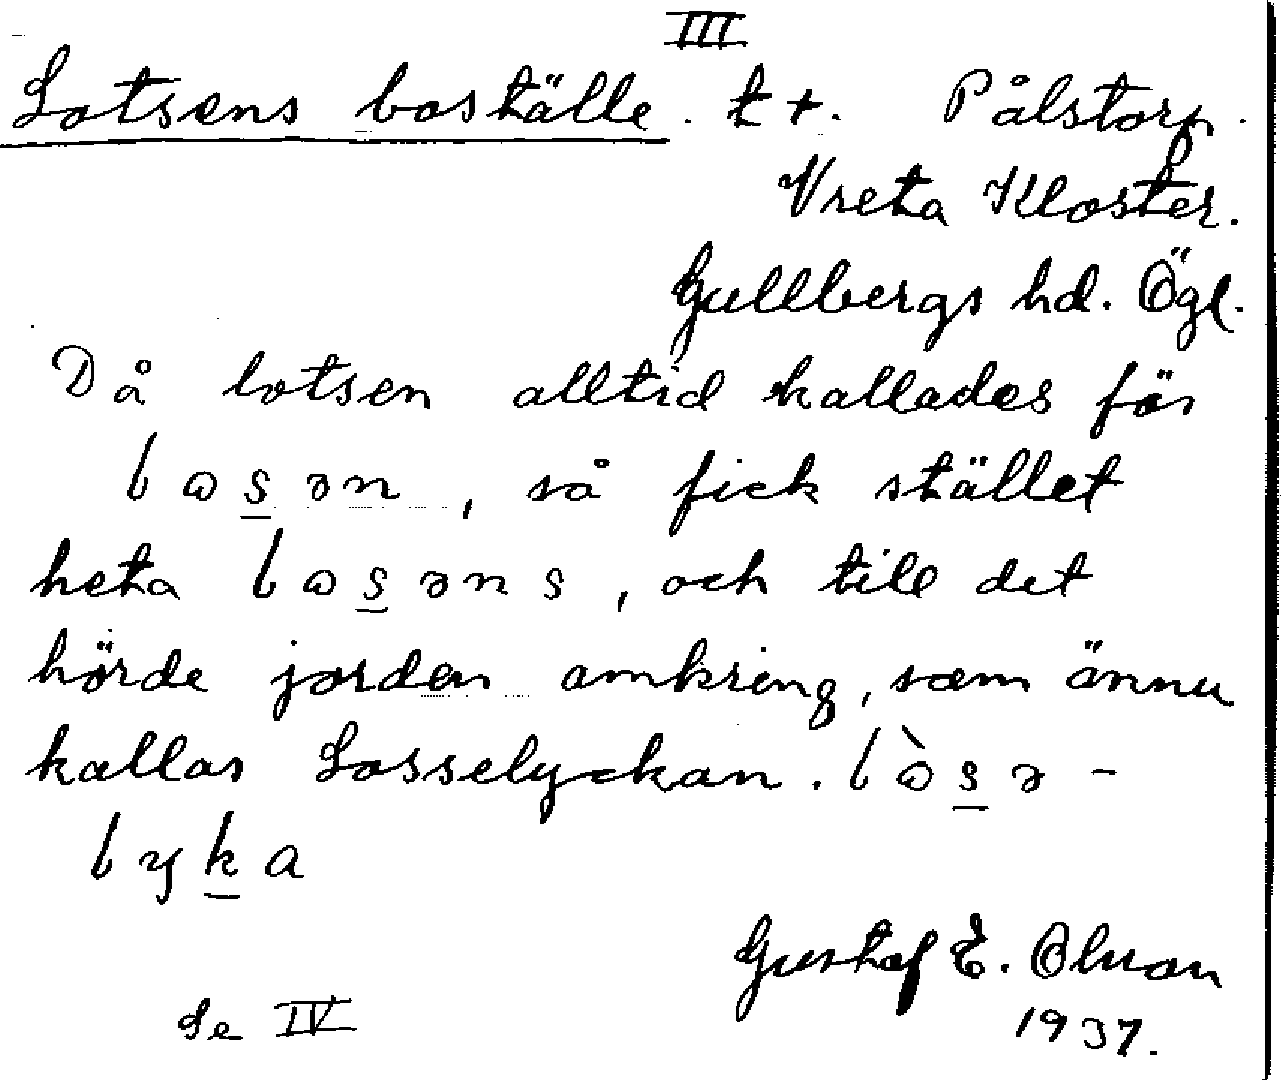 III
Lotsens boställe. tt. Pålstorp.
Vreta Kloster.
Gullbergs hd. Ögl.
Då lotsen alltid kallades för
lɷs̲ən, så fick stället
heta lɷs̲əns, och till det
hörde jorden omkring, som ännu
kallas Losselyckan. lɷ̀s̲ə-
lyk̲a
Gustaf E. Olsson
Se IV
1937.